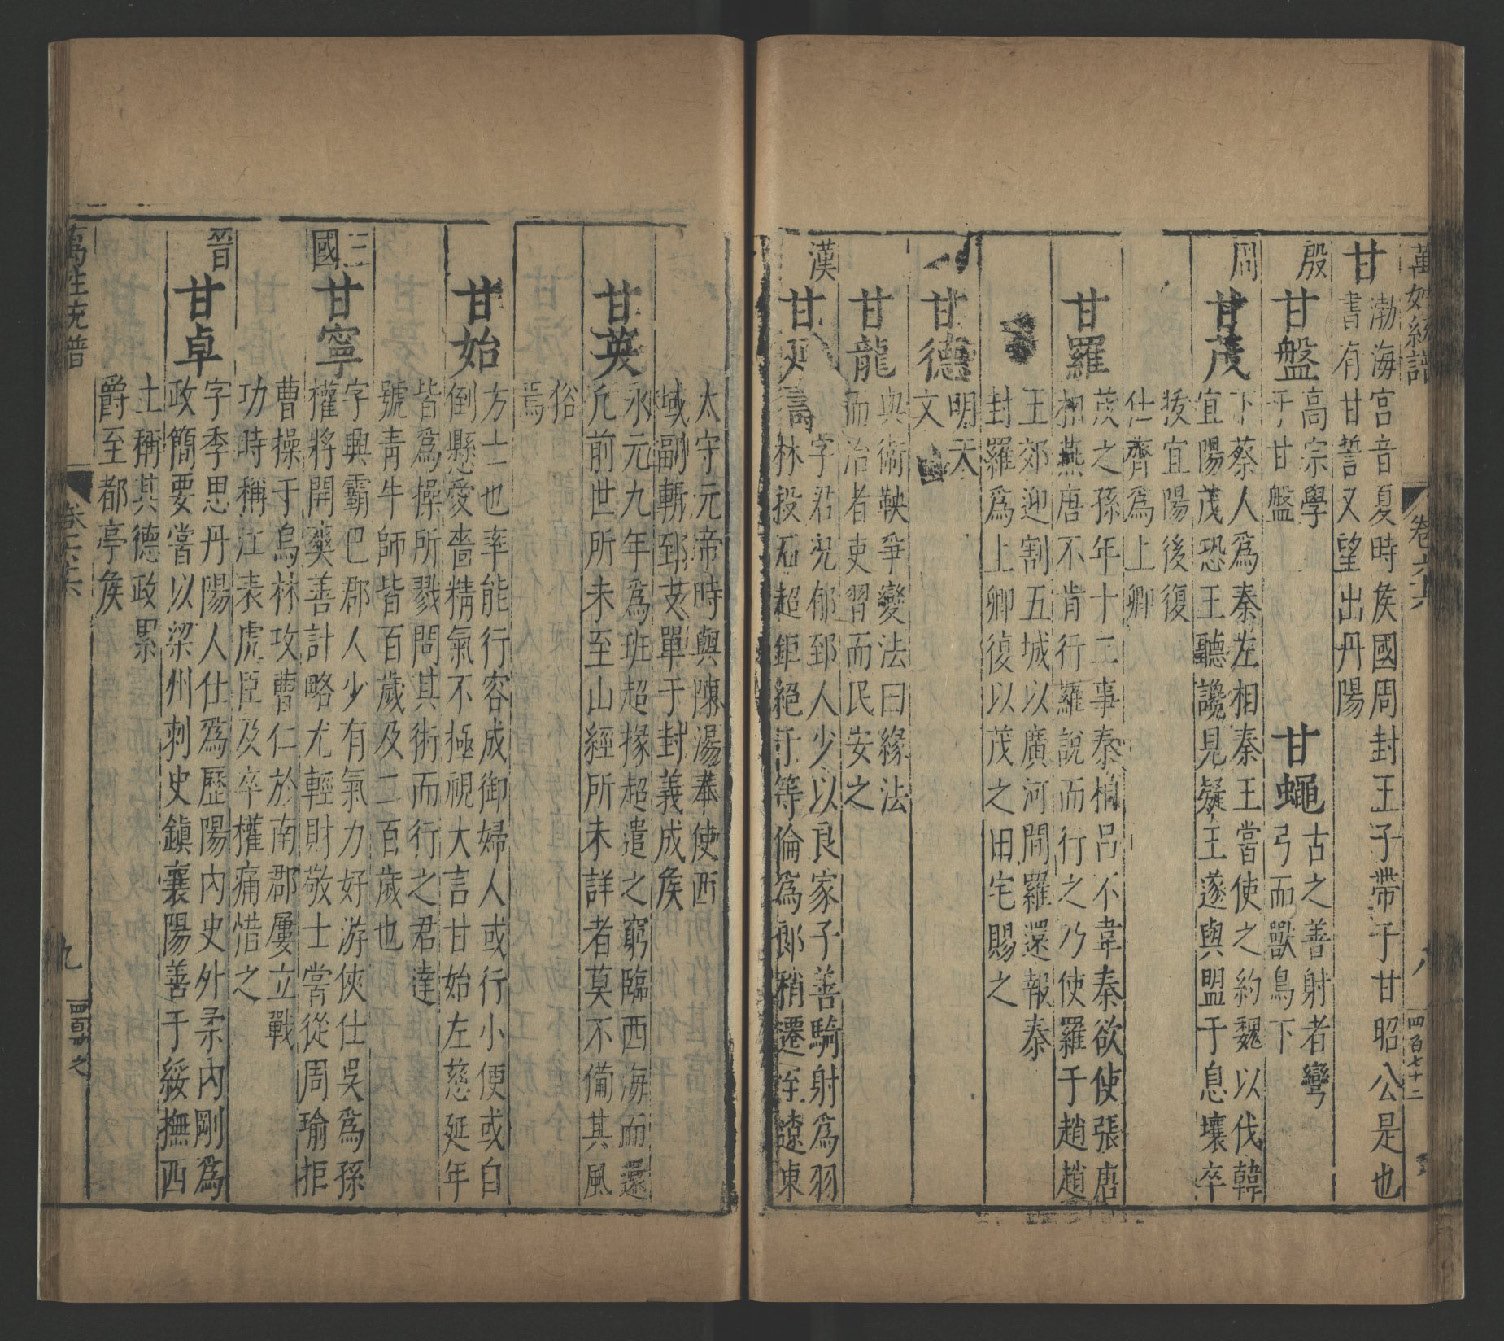 萬姓統譜
卷六十六
八
四百七十二
甘
渤海宮音夏時侯國周封王子帶于甘昭公是也
書有甘誓又望出丹陽
殷
甘盤
高宗學
于甘盤
甘蠅
古之善射者彎
弓而獸鳥下
周
甘茂
下蔡人爲秦左相秦王嘗使之約魏以伐韓
宜陽茂恐王聽讒見疑王遂與盟于息壤卒
拔宜陽後復
仕齊爲上卿
甘羅
茂之孫年十二事秦相呂不韋秦欲使張唐
相燕唐不肯行羅說而行之乃使羅于趙趙
王郊迎割五城以廣河間羅還報秦
封羅爲上卿復以茂之田宅賜之
甘德
明天
文
甘龍
與衛鞅爭變法曰緣法
而治者吏習而民安之
漢
甘延壽
字君況郁郅人少以良家子善騎射爲羽
林投石超距絕于等倫爲郎稍遷至遼東
太守元帝時與陳湯奉使西
域副斬郅支單于封義成侯
甘英
永元九年爲班超掾超遣之窮臨西海而還
凡前世所未至山經所未詳者莫不備其風
俗
焉
甘始
方士也率能行容成御婦人或行小便或自
倒懸愛嗇精氣不極視大言甘始左慈延年
皆爲操所戮問其術而行之君達
號青牛師皆百歲及二百歲也
三
國
甘寧
字興霸巴郡人少有氣力好游俠仕吳爲孫
權將開爽善計略尤輕財敬士嘗從周瑜拒
曹操于烏林攻曹仁於南郡屢立戰
功時稱江表虎臣及卒權痛惜之
晉
甘卓
字季思丹陽人仕爲歷陽內史外柔內剛爲
政簡要嘗以梁州刺史鎮襄陽善于綏撫西
土稱其德政累
爵至都亭侯
萬姓統譜
卷六十六
九